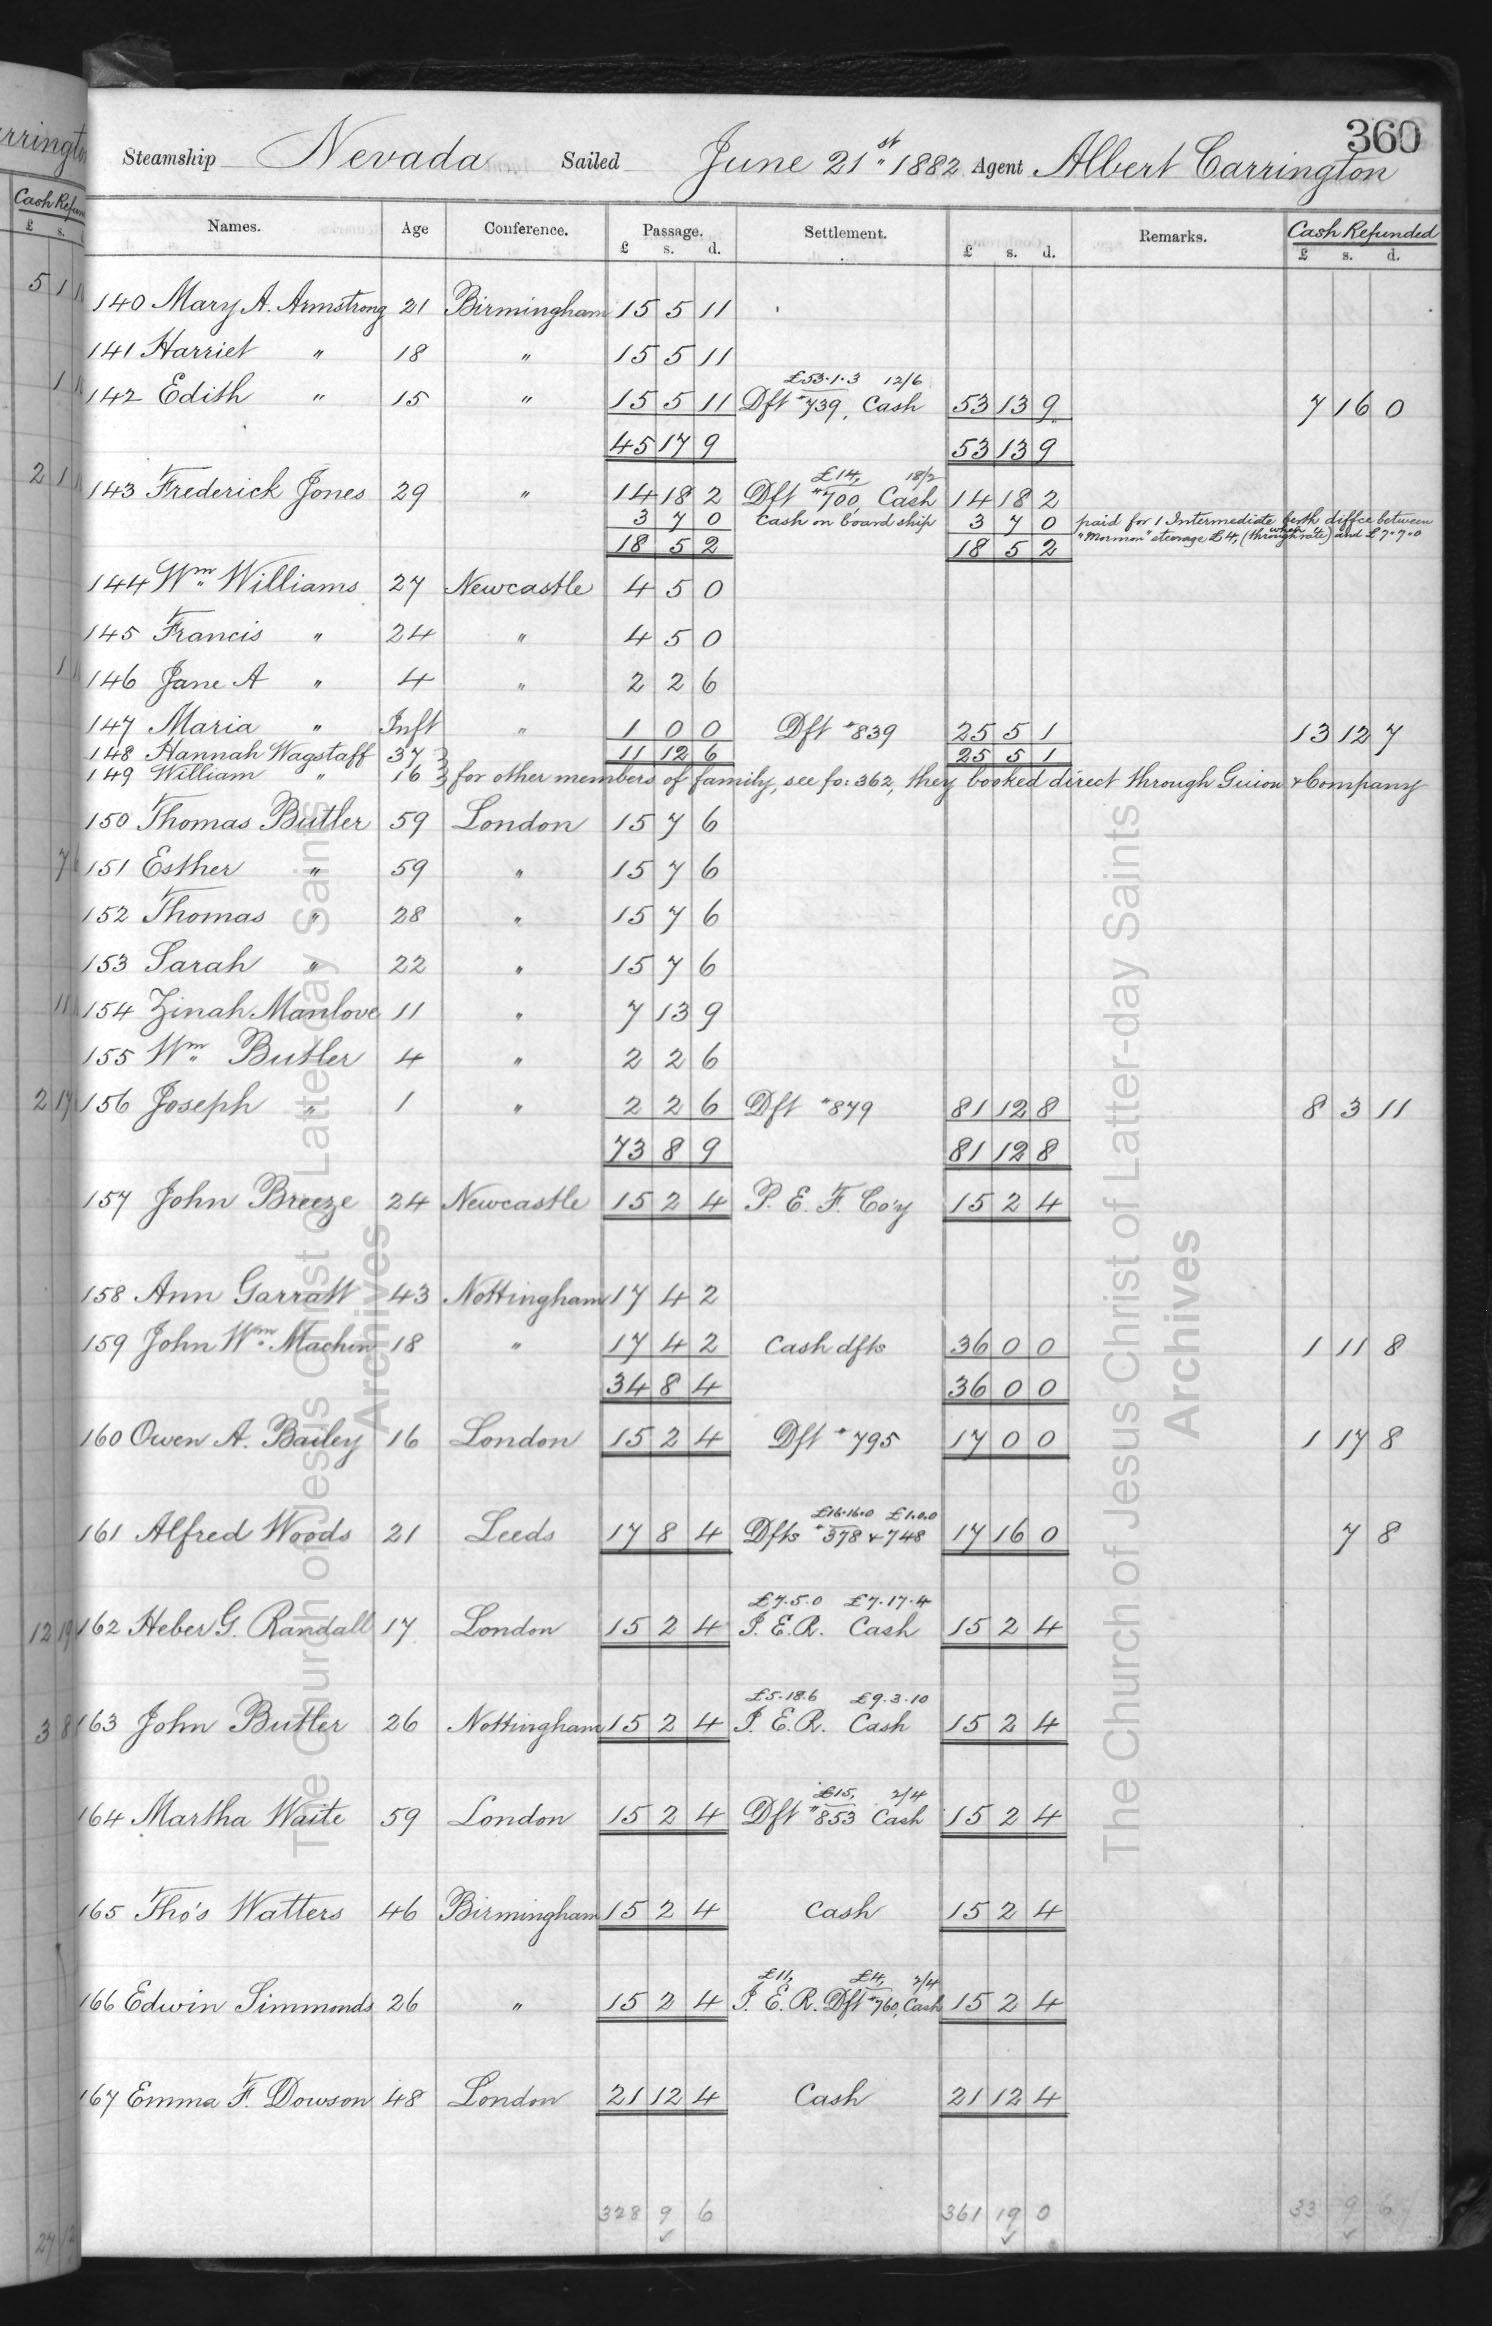 360
Steamship Nevada Sailed June 21st 1882 Agent Albert Carrington
Names. Age Conference. Passage. Settlement. Remarks. Cash Refunded
£ s. d. £ s. d. £ s. d.
140 Mary A. Armstrong 21 Birmingham 15 5 11
141 Harriet " 18 " 15 5 11
£53.1.3 12/6
142 Edith " 15 " 15 5 11 Dft #739, Cash 53 13 9 7 16 0
45 17 9 53 13 9
£14, 18/2
143 Frederick Jones 29 " 14 18 2 Dft #700, Cash 14 18 2
3 7 0 Cash on board ship 3 7 0 paid for 1 Intermediate berth diffce between
18 5 2 18 5 2 "Mormon" steerage £4, (when through rate) and £7.7.0
144 Wm Williams 27 Newcastle 4 5 0
145 Francis " 24 " 4 5 0
146 Jane A " 4 " 2 2 6
147 Maria " Inft " 1 0 0 Dft #839 25 5 1 13 12 7
148 Hannah Wagstaff 37 } 11 12 6 25 5 1
149 William " 16 } for other members of family, see fo: 362, they booked direct through Guion & Company
150 Thomas Butler 59 London 15 7 6
151 Esther " 59 " 15 7 6
152 Thomas " 28 " 15 7 6
153 Sarah " 22 " 15 7 6
154 Zinah Manlove 11 " 7 13 9
155 Wm Butler 4 " 2 2 6
156 Joseph " 1 " 2 2 6 Dft #879 81 12 8 8 3 11
73 8 9 81 12 8
157 John Breeze 24 Newcastle 15 2 4 P. E. F. Co'y 15 2 4
158 Ann Garratt 43 Nottingham 17 4 2
159 John Wm Machin 18 " 17 4 2 Cash dfts 36 0 0 1 11 8
34 8 4 36 0 0
160 Owen A. Bailey 16 London 15 2 4 Dft #795 17 0 0 1 17 8
£16.16.0 £1.0.0
161 Alfred Woods 21 Leeds 17 8 4 Dfts #378 & 748 17 16 0 7 8
£7.5.0 £7.17.4
162 Heber G. Randall 17 London 15 2 4 I. E. R. Cash 15 2 4
£5.18.6 £9.3.10
163 John Butler 26 Nottingham 15 2 4 I. E. R. Cash 15 2 4
£15, 2/4
164 Martha Waite 59 London 15 2 4 Dft #853 Cash 15 2 4
165 Tho's Watters 46 Birmingham 15 2 4 Cash 15 2 4
£11, £4, 2/4
166 Edwin Simmonds 26 " 15 2 4 I. E. R. Dft #760, Cash 15 2 4
167 Emma F. Dowson 48 London 21 12 4 Cash 21 12 4
328 9 6 361 19 0 33 9 6
The Church of Jesus Christ of Latter-day Saints
Archives
The Church of Jesus Christ of Latter-day Saints
Archives